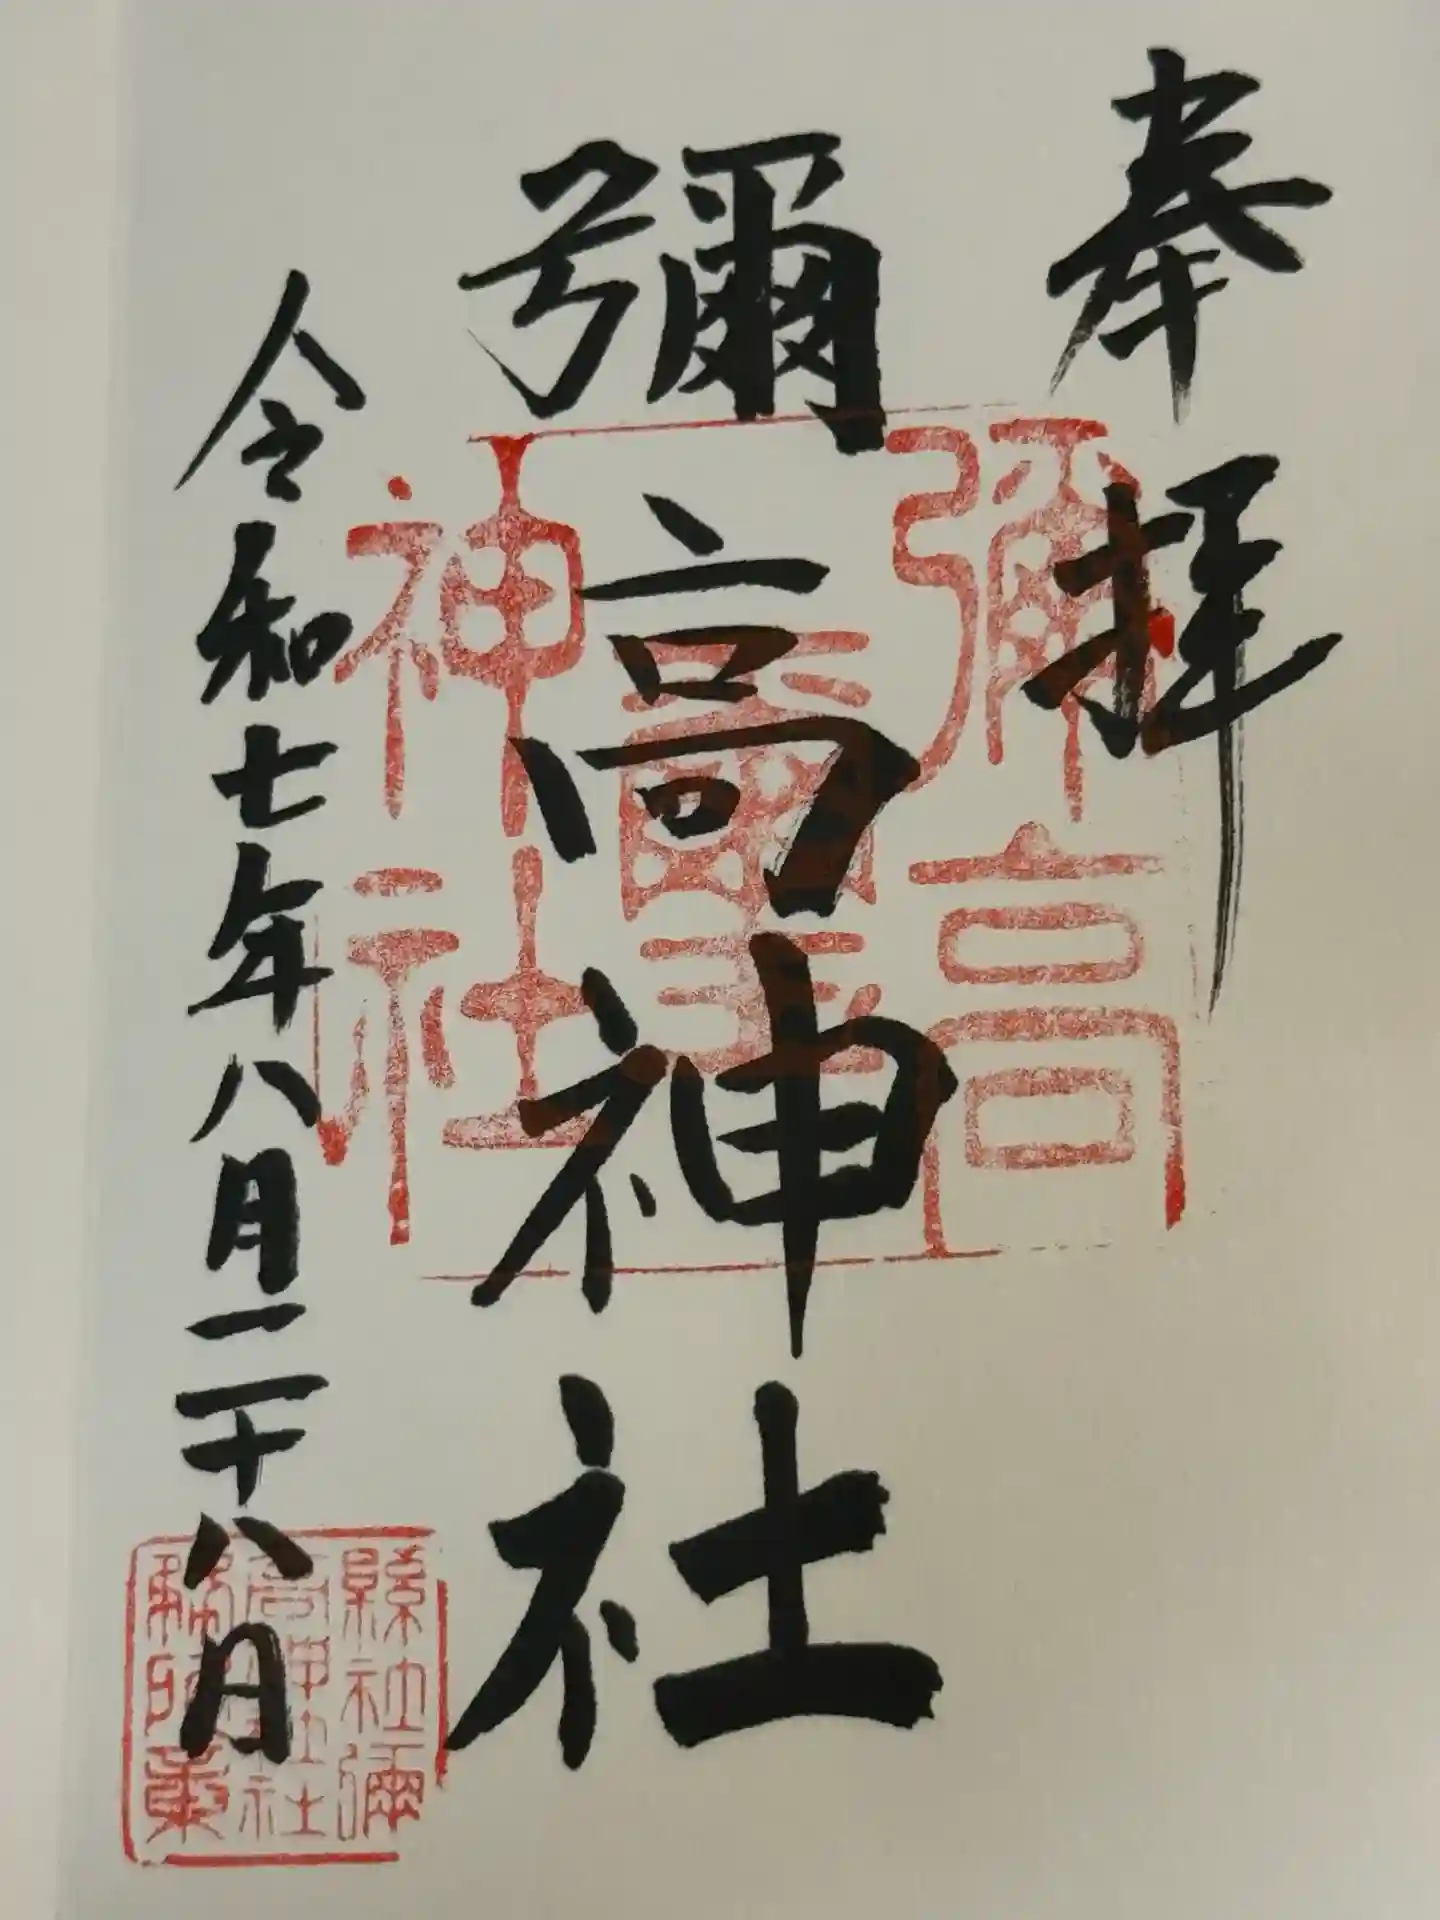 奉拝
彌高神社
令和七年八月二十八日
彌高
爾璽
神社
縣社彌
高神社
務所章